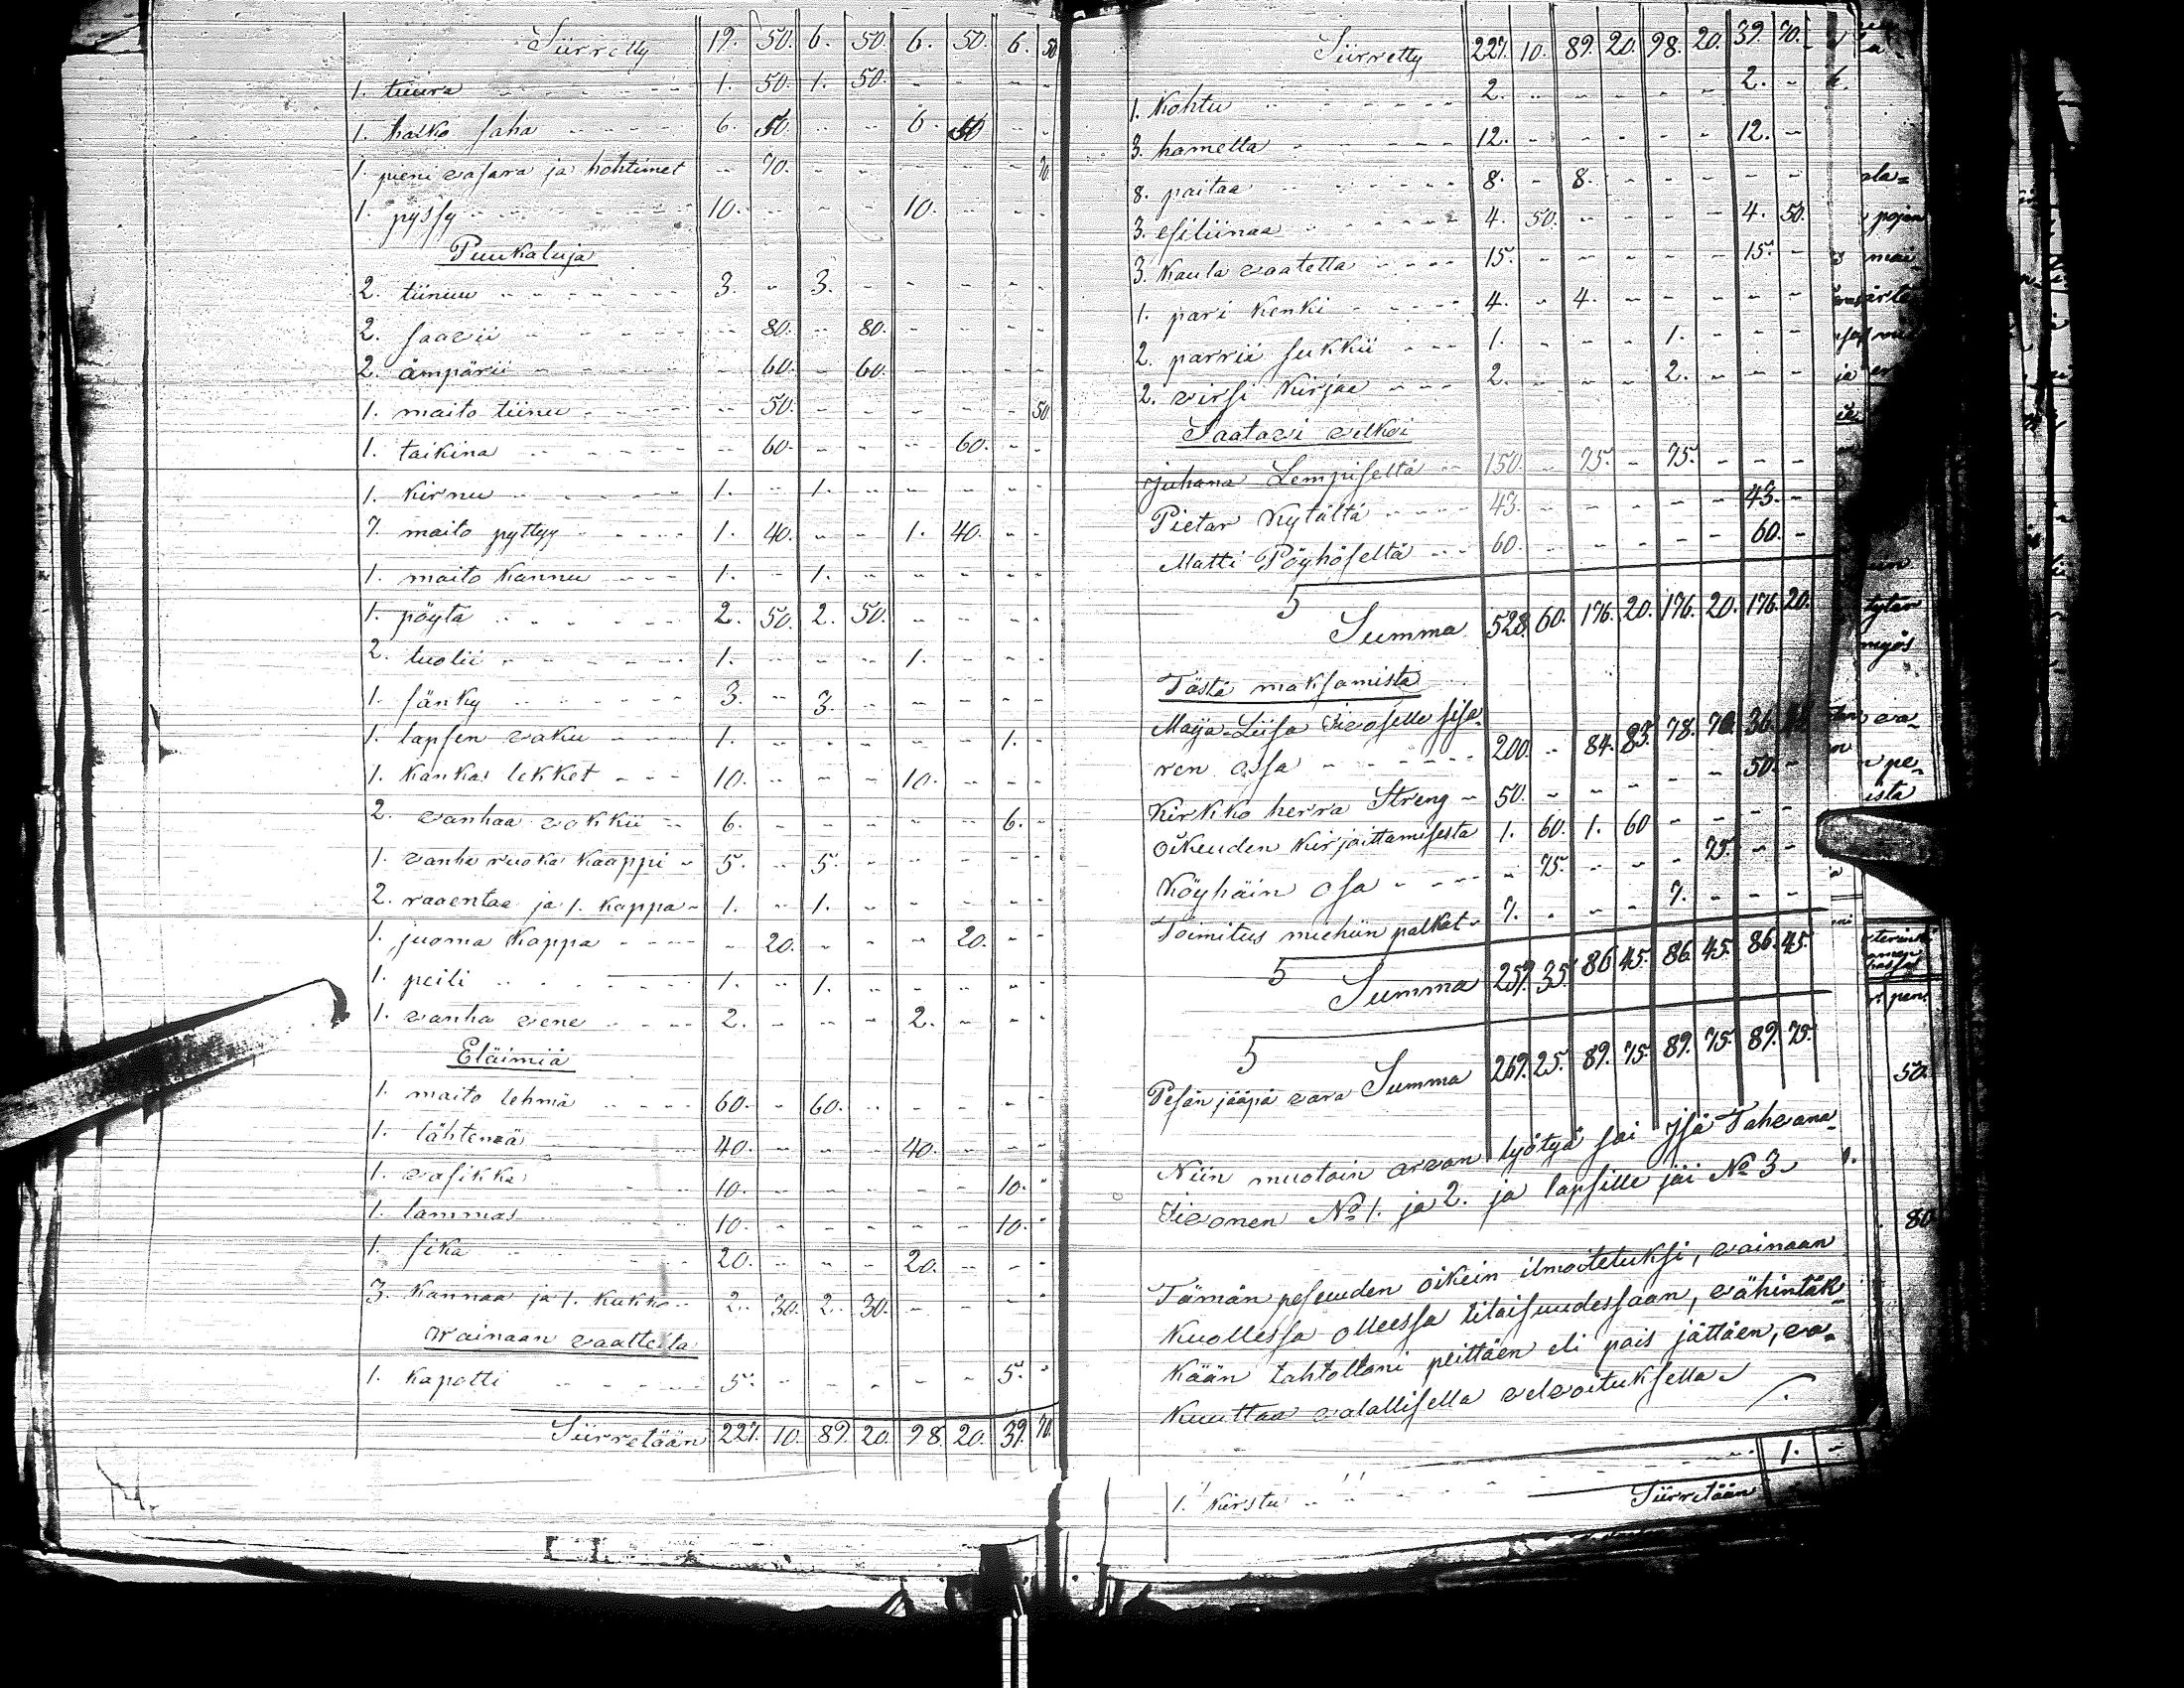 Siirretty 19. 50. 6. 50. 6. 50. 6. 50
1. tuura 1. 50. 1. 50. - - - -
1. halko saha 6. 50. - - 6. 50 - -
1. pieni vasara ja hohtimet - 70. - - - - - 70.
1. pyssy 10. - - - 10. - - -
Puukaluja
2. tiinuu 3. - 3. - - - - -
2. saavii - 80. - 80. - - - -
2. ämpärii - 60. - 60. - - - -
1. maito tiinu - 50. - - - - - 50
1. taikina - 60. - - - 60. - -
1. Kirnu 1. - 1. - - - - -
7. maito pyttyy 1. 40. - - 1. 40. - -
1. maito Kannu 1. - 1. - - - - -
1. pöytä 2. 50. 2. 50. - - - -
2. tuolii 1. - - - 1. - - -
1. sänky 3. - 3. - - - - -
1. lapsen vaku 1. - - - - - 1. -
1. Kankas lekket 10. - - - 10. - - -
2. vanhaa vokkii 6. - - - - - 6. -
1. vanha ruoka Kaappi 5. - 5. - - - - -
2. raaentaa ja 1. Kappa 1. - 1. - - - - -
1. juoma Kappa - 20. - - - 20. - -
1. peili 1. - 1. - - - - -
1. vanha vene 2. - - - 2. - - -
Eläimiä
1. maito lehmä 60. - 60. - - - - -
1. lähtemä 40. - - - 40. - - -
1. vasikka 10. - - - - - 10. -
1. lammas 10. - - - - - 10. -
1. sika 20. - - - 20. - - -
3. Kannaa ja 1. Kukko 2. 30. 2. 30. - - - -
Wainaan vaatteita
1. Kapotti 5. - - - - - 5. -
Siirretään 227. 10. 89. 20. 98. 20. 39. 70.
Siirretty 227. 10. 89. 20. 98. 20. 39. 70.
1. Kohtu 2. - - - - - 2. -
3. hametta 12. - - - - - 12. -
8. paitaa 8. - 8. - - - - -
3. esiliinaa 4. 50. - - - - 4. 50.
3. Kaula vaatetta 15. - - - - - 15. -
1. pari Kenki 4. - 4. - - - - -
2. parrii sukkii 1. - - - 1. - - -
2. virsi Kirjaa 2. - - - 2. - - -
Saatavi velkoi
Juhana Lempiseltä 150. - 75. - 75. - - -
Pietar Kytältä 43. - - - - - 43. -
Matti Pöyhöseltä 60. - - - - - 60. -
Summa 528. 60. 176. 20. 176. 20. 176. 20.
Tästä maksamista
Maija-Liisa Sivoselle sisa-
ren ossa 200. - 84. 85. 78. 70. 36. 45
Kirkko herra Streng 50. - - - - - 50. -
Oikeuden Kirjoittamisesta 1. 60. 1. 60 - - - -
Köyhäin osa - 75. - - - 75. - -
Toimitus miehiin palkat 7. - - - 7. - - -
Summa 259. 35. 86. 45. 86. 45. 86. 45.
Pesän jääpä vara Summa 269. 25. 89. 75. 89. 75. 89. 75.
Niin muotoin arvan lyötyä sai Isä Tahvana
Sivonen No 1. ja 2. ja lapsille jäi No 3
Tämän pesuuden oikein ilmoitetuksi, vainaan
Kuollessa olleessa tilaisuudessaan, vähintäk-
kään tahtoltani peittäen eli pois jättäen, va-
kuuttaa valallisella velvoituksella
1. Kirstu 1. -
Siirretään